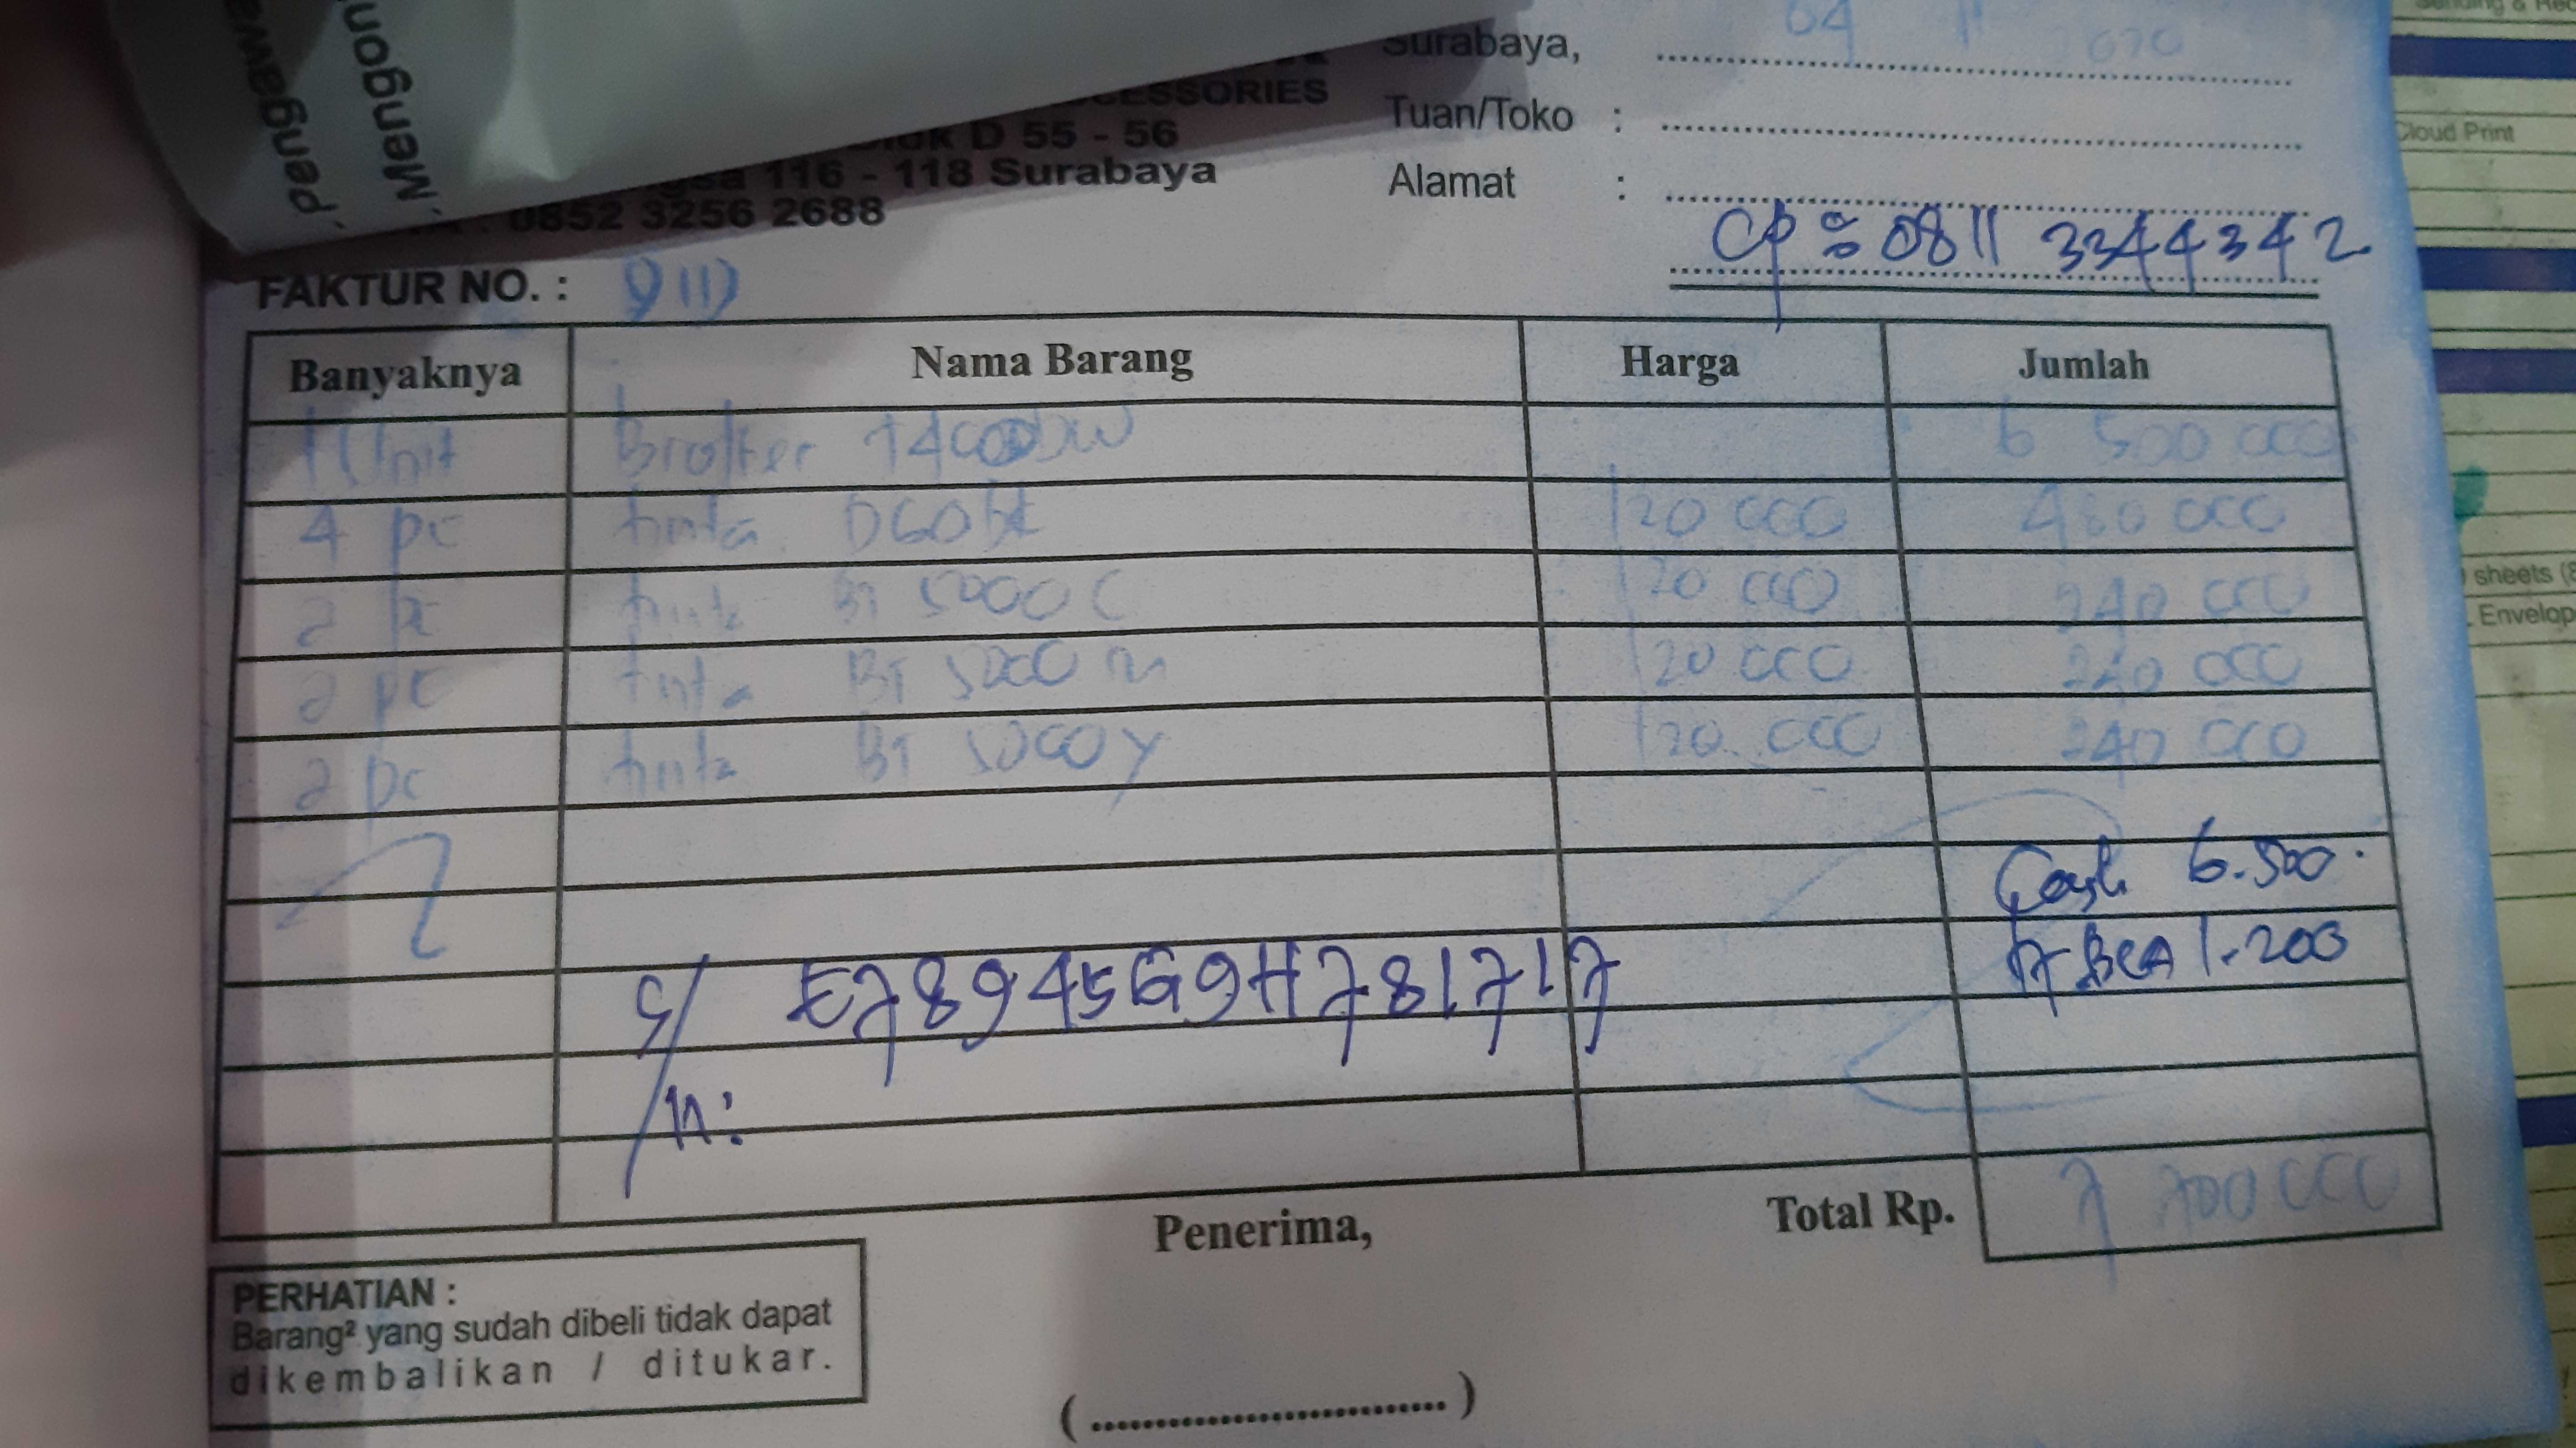 Surabaya, 04 11
ESSORIES
Tuan/Toko :
D 55 - 56
116 - 118 Surabaya
Alamat :
0852 3256 2688
CP : 0811 3344342
FAKTUR NO. :
Banyaknya Nama Barang Harga Jumlah
1 Unit Brother T4000DW 6 500 000
4 pc tinta D60BK 120 000 480 000
2 pc tinta BT 5000 C 120 000 240 000
2 pc tinta BT 5000 m 120 000 240 000
2 pc tinta BT 5000 y 120 000 240 000
Cash 6.500.
BCA 1.200
S/N: E78945G9H781717
Total Rp. 7 700 000
Penerima,
PERHATIAN :
Barang² yang sudah dibeli tidak dapat
dikembalikan / ditukar.
(..............................)
Mengon
pengawe
Cloud Print
sheets (8
Envelop